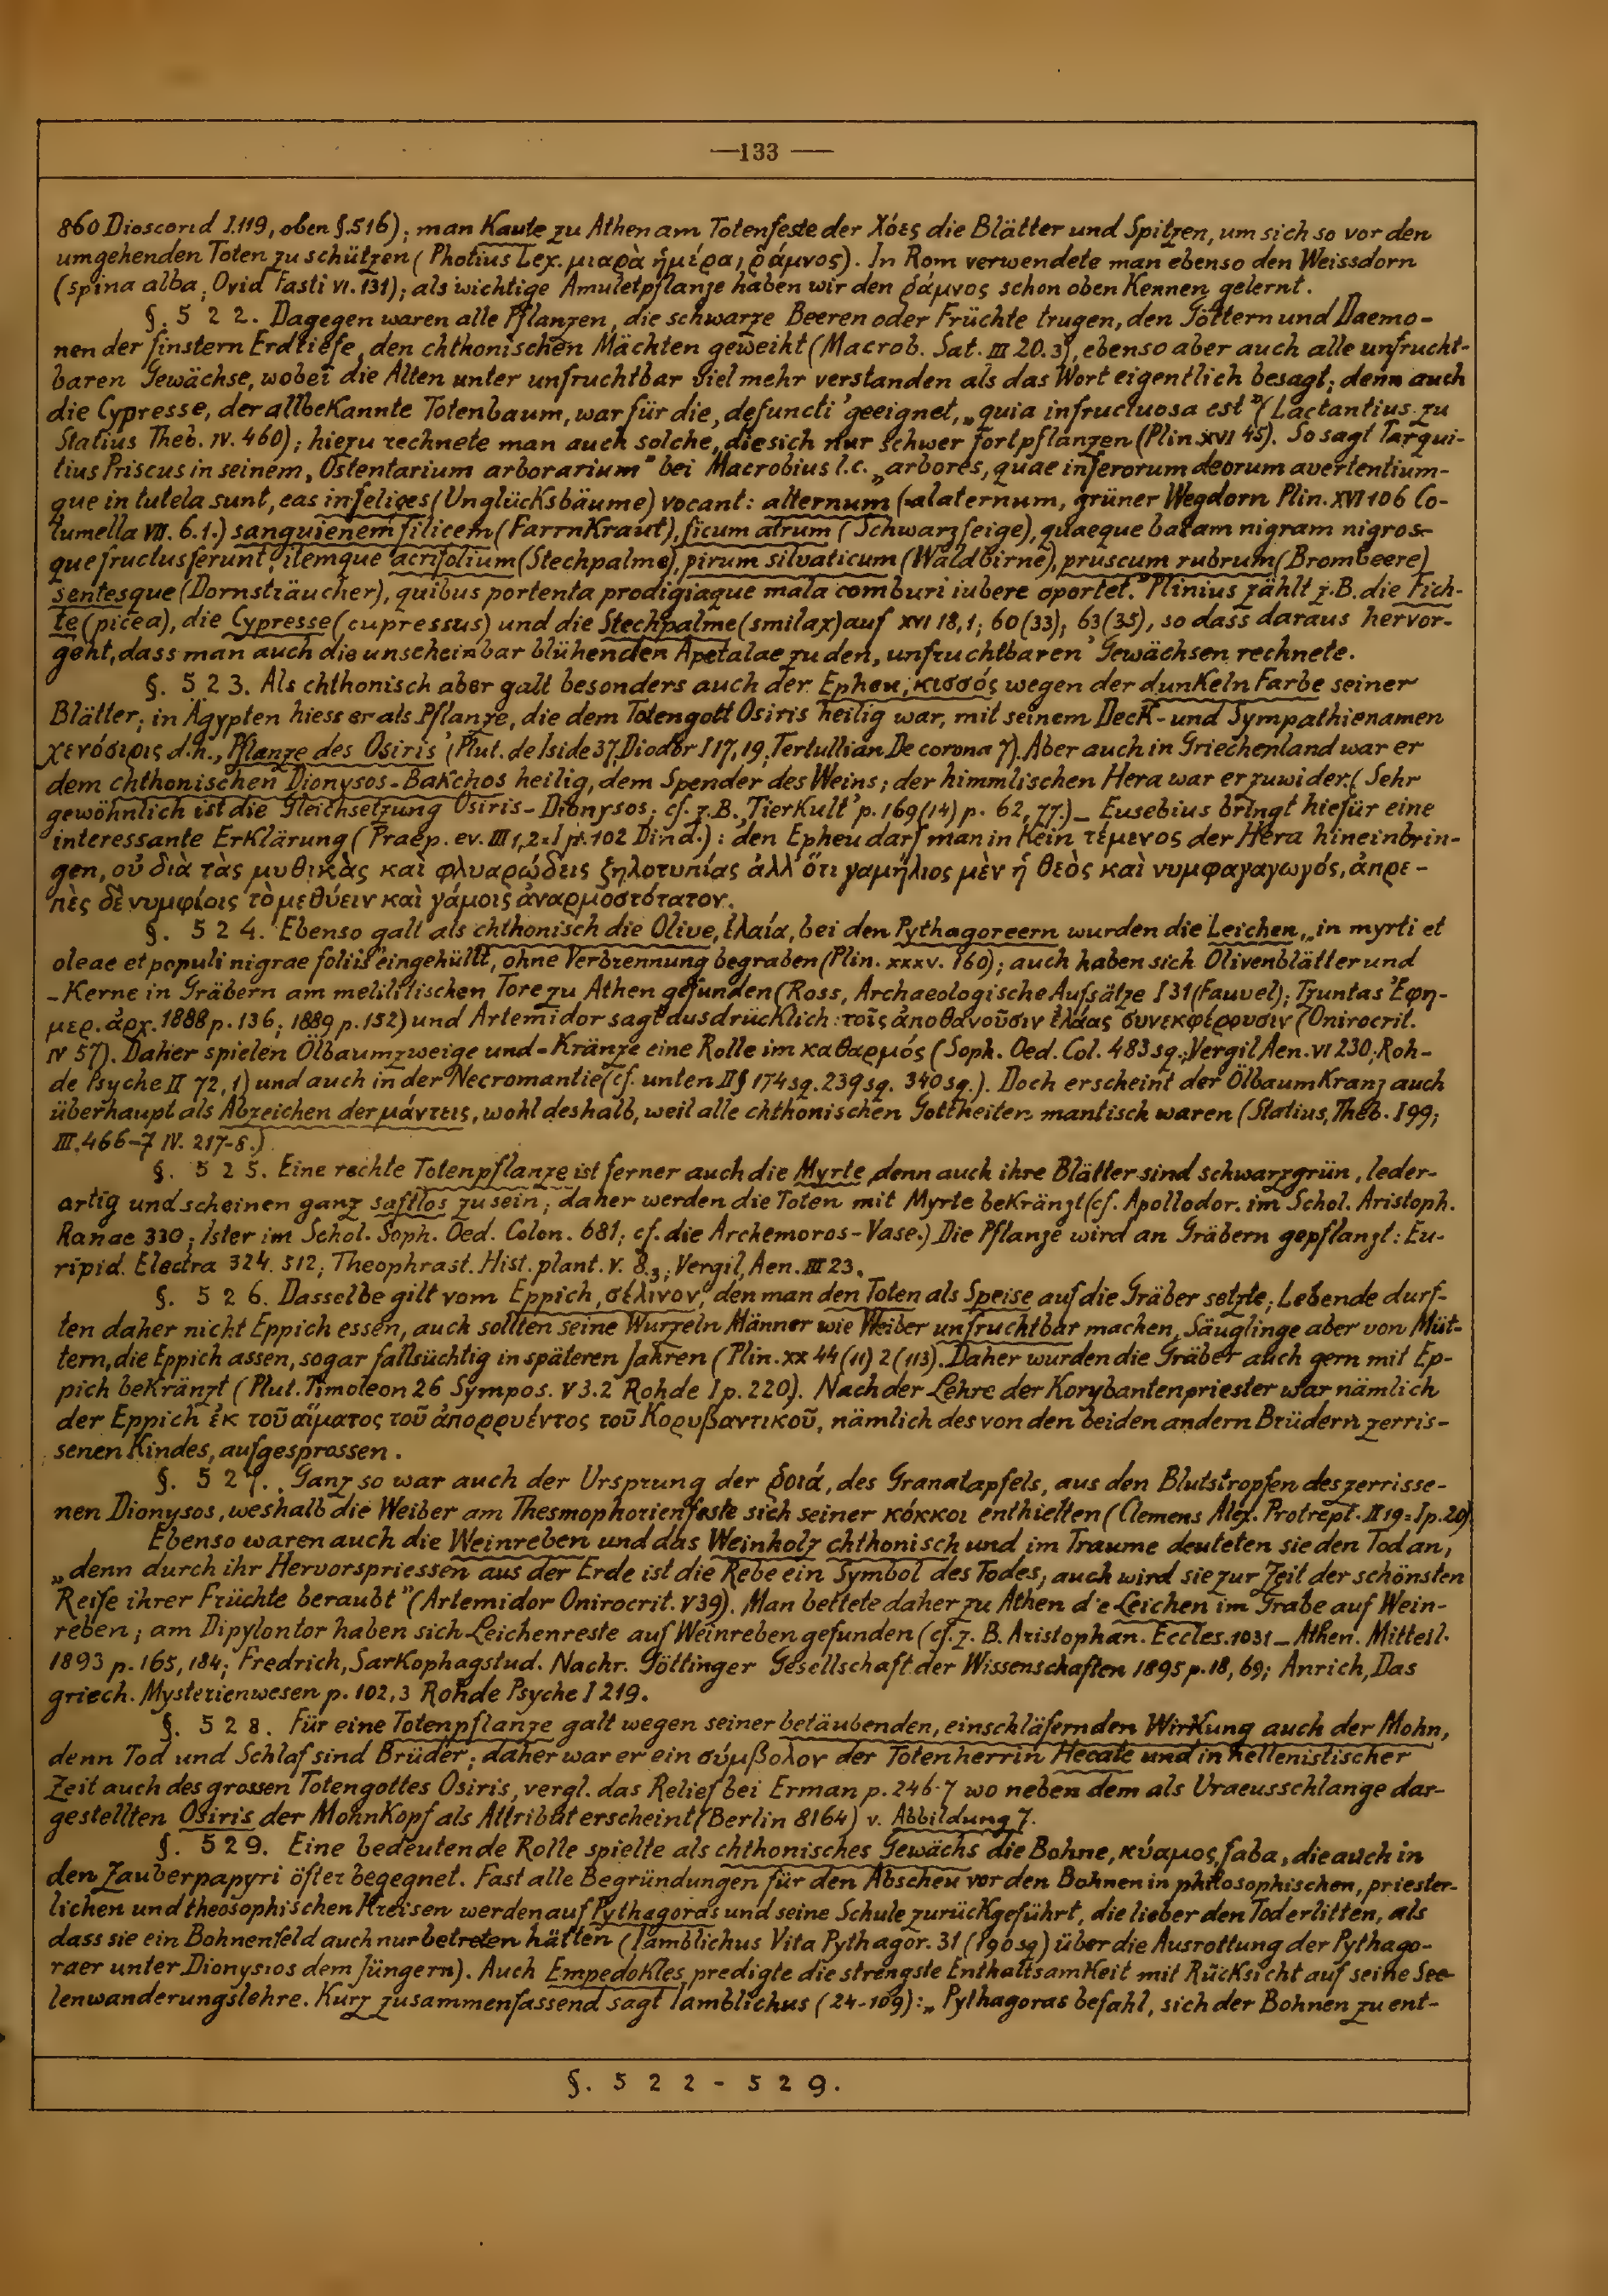 —133—
860 Dioscorid I.119, oben §.516); man kaute zu Athen am Totenfeste der Χόες die Blätter und Spitzen, um sich so vor den
umgehenden Toten zu schützen (Photius Lex. μιαρὰ ἡμέρα, ῥάμνος). In Rom verwendete man ebenso den Weissdorn
(spina alba, Ovid Fasti VI. 131); als wichtige Amuletpflanze haben wir den ῥάμνος schon oben kennen gelernt.
§. 5 2 2. Dagegen waren alle Pflanzen, die schwarze Beeren oder Früchte trugen, den Göttern und Daemo-
nen der finstern Erdtiefe, den chthonischen Mächten geweiht (Macrob. Sat. III 20.3), ebenso aber auch alle unfrucht-
baren Gewächse, wobei die Alten unter unfruchtbar viel mehr verstanden als das Wort eigentlich besagt; denn auch
die Cypresse, der altbekannte Totenbaum, war für die ‚defuncti' geeignet, „quia infructuosa est" (Lactantius zu
Statius Theb. IV. 460); hiezu rechnete man auch solche, die sich nur schwer fortpflanzen (Plin. XVI 45). So sagt Tarqui-
tius Priscus in seinem „Ostentarium arborarium" bei Macrobius l.c. „arbores, quae inferorum deorum avertentium-
que in tutela sunt, eas infelices (Unglücksbäume) vocant: alternum (=alaternum, grüner Wegdorn Plin. XVI 106 Co-
lumella VII. 6.1.) sanguienem filicem (Farrnkraut), ficum atrum (Schwarzfeige), quaeque bacam nigram nigros-
que fructus ferunt, itemque acrifolium (Stechpalme), pirum silvaticum (Waldbirne), pruscum rubrum (Brombeere)
sentesque (Dornsträucher), quibus portenta prodigiaque mala comburi iubere oportet." Plinius zählt z.B. die Fich-
te (picea), die Cypresse (cupressus) und die Stechpalme (smilax) auf XVI 18,1; 60(33); 63(35), so dass daraus hervor-
geht, dass man auch die unscheinbar blühenden Apetalae zu den ‚unfruchtbaren' Gewächsen rechnete.
§. 5 2 3. Als chthonisch aber galt besonders auch der Epheu, κισσός wegen der dunkeln Farbe seiner
Blätter; in Ägypten hiess er als Pflanze, die dem Totengott Osiris heilig war, mit seinem Deck- und Sympathienamen
χενόσιρις d.h. ‚Pflanze des Osiris' (Plut. de Iside 37, Diodor I 17, 19, Tertullian De corona 7). Aber auch in Griechenland war er
dem chthonischen Dionysos-Bakchos heilig, dem Spender des Weins; der himmlischen Hera war er zuwider. (Sehr
gewöhnlich ist die Gleichsetzung Osiris-Dionysos; cf. z.B. ‚Tierkult' p. 169(14) p. 62, 77.) _ Eusebius bringt hiefür eine
interessante Erklärung (Praep. ev. III 1,2 = I p. 102 Dind.): den Epheu darf man in kein τέμενος der Hera hineinbrin-
gen, οὐ διὰ τὰς μυθικὰς καὶ φλυαρώδεις ζηλοτυπίας ἀλλ' ὅτι γαμήλιος μὲν ἡ θεὸς καὶ νυμφαγαγωγός, ἀπρε-
πὲς δὲ νυμφίοις τὸ μεθύειν καὶ γάμοις ἀναρμοστότατον.
§. 5 2 4. Ebenso galt als chthonisch die Olive, ἐλαία, bei den Pythagoreern wurden die Leichen „in myrti et
oleae et populi nigrae foliis" eingehüllt, ohne Verbrennung begraben (Plin. XXXV. 160); auch haben sich Olivenblätter und
-Kerne in Gräbern am melilitischen Tore zu Athen gefunden (Ross, Archaeologische Aufsätze I 31 (Fauvel); Tzuntas Ἐφη-
μερ. ἀρχ. 1888 p. 136; 1889 p. 152) und Artemidor sagt ausdrücklich: τοῖς ἀποθανοῦσιν ἐλάας συνεκφέρουσιν (Onirocrit.
IV 57). Daher spielen Ölbaumzweige und -Kränze eine Rolle im καθαρμός (Soph. Oed. Col. 483 sq.; Vergil Aen. VI 230; Roh-
de Psyche II 72,1) und auch in der Necromantie (cf. unten II § 174 sq. 239 sq. 340 sq.). Doch erscheint der Ölbaumkranz auch
überhaupt als Abzeichen der μάντεις, wohl deshalb, weil alle chthonischen Gottheiten mantisch waren (Statius, Theb. I 99;
III. 466-7 IV. 217-8.)
§. 5 2 5. Eine rechte Totenpflanze ist ferner auch die Myrte, denn auch ihre Blätter sind schwarzgrün, leder-
artig und scheinen ganz saftlos zu sein; daher werden die Toten mit Myrte bekränzt (cf. Apollodor. im Schol. Aristoph.
Ranae 330; Ister im Schol. Soph. Oed. Colon. 681; cf. die Archemoros-Vase.) Die Pflanze wird an Gräbern gepflanzt: Eu-
ripid. Electra 324. 512; Theophrast. Hist. plant. V. 8.3; Vergil, Aen. III 23.
§. 5 2 6. Dasselbe gilt vom Eppich, σέλινον, den man den Toten als Speise auf die Gräber setzte; Lebende durf-
ten daher nicht Eppich essen, auch sollten seine Wurzeln Männer wie Weiber unfruchtbar machen, Säuglinge aber von Müt-
tern, die Eppich assen, sogar fallsüchtig in späteren Jahren (Plin. XX 44 (11) 2 (113). Daher wurden die Gräber auch gern mit Ep-
pich bekränzt (Plut. Timoleon 26 Sympos. V 3.2 Rohde I p. 220). Nach der Lehre der Korybantenpriester war nämlich
der Eppich ἐκ τοῦ αἵματος τοῦ ἀπορρυέντος τοῦ Κορυβαντικοῦ, nämlich des von den beiden andern Brüdern zerris-
senen Kindes, aufgesprossen.
§. 5 2 7. Ganz so war auch der Ursprung der ῥοιά, des Granatapfels, aus den Blutstropfen des zerrisse-
nen Dionysos, weshalb die Weiber am Thesmophorienfeste sich seiner κόκκοι enthielten (Clemens Alex. Protrept. II 19 = I p. 20)
Ebenso waren auch die Weinreben und das Weinholz chthonisch und im Traume deuteten sie den Tod an,
„denn durch ihr Hervorspriessen aus der Erde ist die Rebe ein Symbol des Todes; auch wird sie zur Zeit der schönsten
Reife ihrer Früchte beraubt" (Artemidor Onirocrit. V 39). Man bettete daher zu Athen die Leichen im Grabe auf Wein-
reben; am Dipylontor haben sich Leichenreste auf Weinreben gefunden (cf. z. B. Aristophan. Eccles. 1031 _ Athen. Mitteil.
1893 p. 165, 184; Fredrich, Sarkophagstud. Nachr. Göttinger Gesellschaft der Wissenschaften 1895 p. 18, 69; Anrich, Das
griech. Mysterienwesen p. 102,3 Rohde Psyche I 219.
§. 5 2 8. Für eine Totenpflanze galt wegen seiner betäubenden, einschläfernden Wirkung auch der Mohn,
denn Tod und Schlaf sind Brüder; daher war er ein σύμβολον der Totenherrin Hecate und in hellenistischer
Zeit auch des grossen Totengottes Osiris, vergl. das Relief bei Erman p. 246-7 wo neben dem als Uraeusschlange dar-
gestellten Osiris der Mohnkopf als Attribut erscheint (Berlin 8164) v. Abbildung 7.
§. 5 2 9. Eine bedeutende Rolle spielte als chthonisches Gewächs die Bohne, κύαμος, faba, die auch in
den Zauberpapyri öfter begegnet. Fast alle Begründungen für den Abscheu vor den Bohnen in philosophischen, priester-
lichen und theosophischen Kreisen werden auf Pythagoras und seine Schule zurückgeführt, die lieber den Tod erlitten, als
dass sie ein Bohnenfeld auch nur betreten hätten (Iamblichus Vita Pythagor. 31 (190 sq) über die Ausrottung der Pythago-
raer unter Dionysios dem Jüngern). Auch Empedokles predigte die strengste Enthaltsamkeit mit Rücksicht auf seine See-
lenwanderungslehre. Kurz zusammenfassend sagt Iamblichus (24-109): „Pythagoras befahl, sich der Bohnen zu ent-
§. 5 2 2 - 5 2 9.